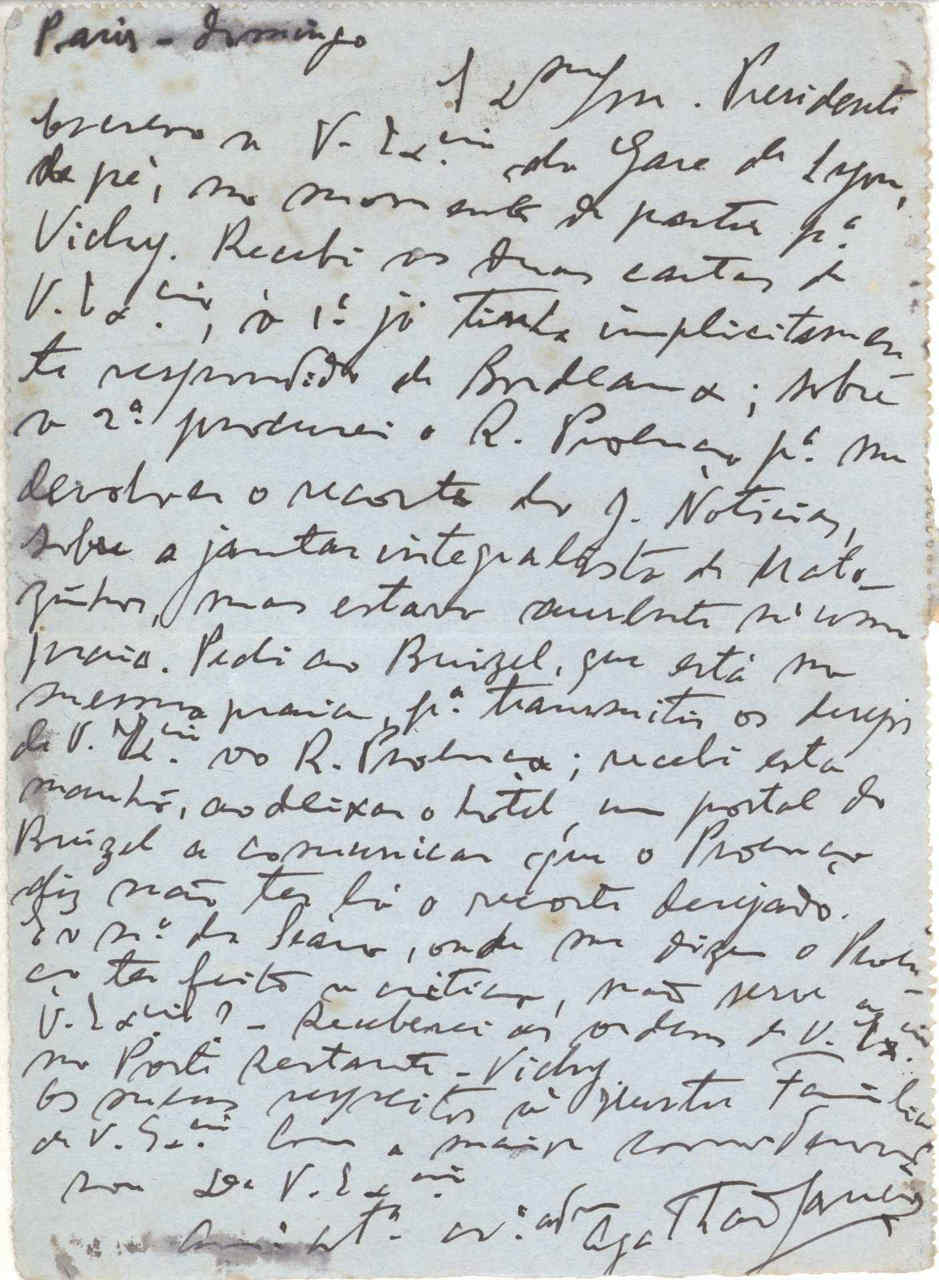 Paris - domingo
Presidente
Escrevo a V. Ex.cia da Gare de Lyon,
de pé, no momento de partir p.ª
Vichy. Recebi as duas cartas de
V. Ex.cia, à 1ª já tinha implicitamen
te respondido de Bordeaux; sobre
a 2ª procurei o R. Proença p.ª me
devolver o recorte do J. Noticias,
sobre o jantar integralista de Mato-
zinhos, mas estava ausente n'uma
praia. Pedi ao Bruizel, que está na
mesma praia, p.ª transmitir os desejos
de V. Ex.cia ao R. Proença; recebi esta
manhã, ao deixar o hotel, um postal do
Bruizel a comunicar que o Proença
diz não ter lá o recorte desejado.
E o n.º da Seara, onde me dizem o Proen-
ça ter feito a critica, não serve a
V. Ex.cia? - Receberei as ordens de V. Ex.cia
na Poste Restante - Vichy
Os meus respeitos à Familia
de V. Ex.cia Com a maior consideração
sou de V. Ex.cia
Agathão Lança